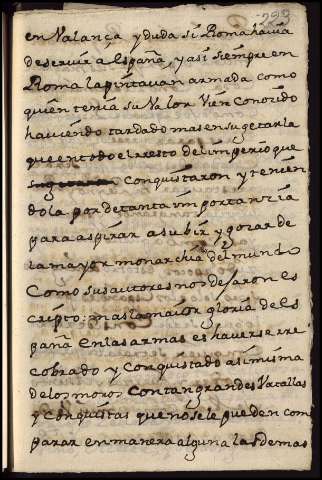 293
en Valança y duda si Roma havia
de servir a España, y asi siempre en
Roma la pintavan armada como
quien tenia su Valor Vien Conoçido
haviendo tardado mas en sugetarla
que en todo el resto del imperio que
Conquistaron y tenien
dola por de tanta importanzia
para aspirar a subir y goçar de
la mayor monarchia del mundo
Como sus autores nos dejaron es
cripto; mas la maior gloria de Es
paña en las armas es haverse rre
cobrado y Conquistado asi misma
de los moros Con tan grandes Vatallas
y conquistas que no se le pueden com
parar en manera alguna las demas